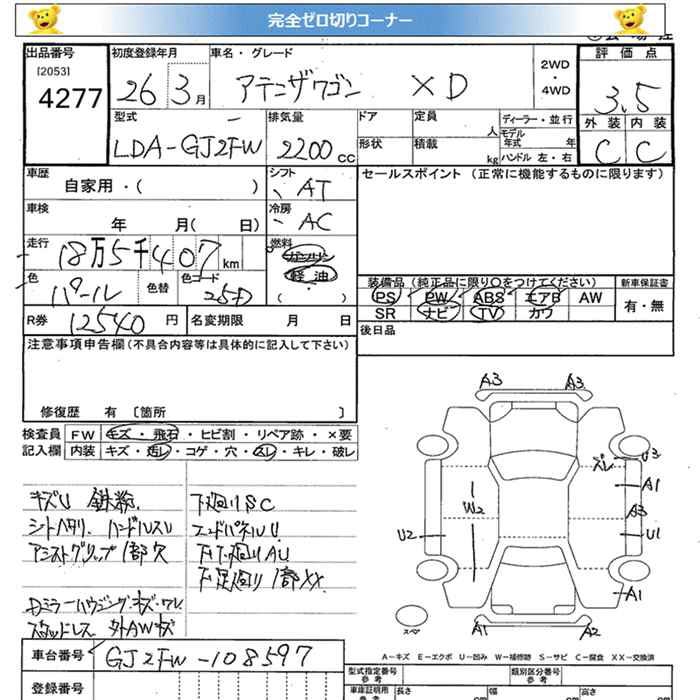 完全ゼロ切りコーナー
出品番号 初度登録年月 車名・グレード 評価点
[2053]
4277 26 3月 アテンザワゴン XD 2WD・4WD 3.5
型式 排気量 ドア 定員 人 ディーラー・並行 外装 内装
LDA-GJ2FW 2200cc 形状 積載 kg モデル年式 年 ハンドル 左・右 C C
車歴 シフト セールスポイント(正常に機能するものに限ります)
自家用・( ) AT
車検 冷房
年 月( 日) AC
走行 燃料
18万5千407km ガソリン
色 色替 色コード 軽油
パール 25D ( )
装備品(純正品に限り○をつけてください) 新車保証書
PS PW ABS エアB AW 有・無
SR ナビ TV カワ
R券 12540円 名変期限 月 日 後日品
注意事項申告欄(不具合内容等は具体的に記入して下さい)
修復歴 有 〔箇所 〕
検査員 FW キズ・飛石・ヒビ割・リペア跡・×要
記入欄 内装 キズ・汚レ・コゲ・穴・スレ・キレ・破レ
キズU 鉄粉 下廻りSC
シートヘタリ ハンドルスレ エンドパネルU
アシストグリップ1部欠 下廻りAU
下足廻り1部XX
Dミラーハウジングキズ・ワレ
スタッドレス 外AWキズ
A3 A3
ズレ U3
A1
W2 A3
U2 U1
A1
スペア A1 A2
A-キズ E-エクボ U-凹み W-補修跡 S-サビ C-腐食 XX-交換済
車台番号 GJ2FW-108597
型式指定番号 参考 類別区分番号 参考
登録番号 車庫証明用 参考 長さ cm 幅 cm 高さ cm